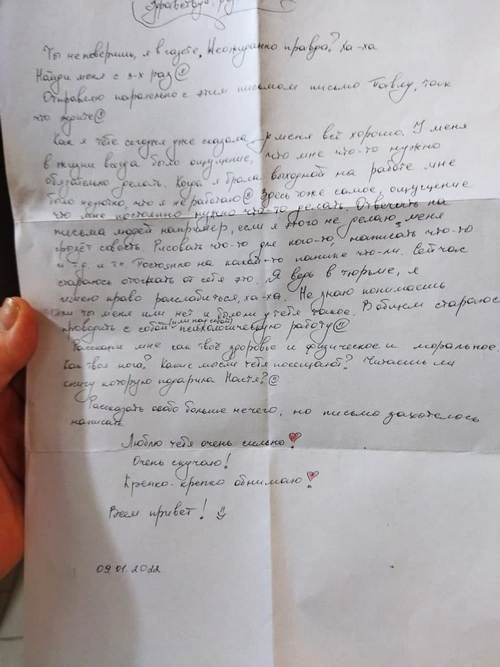 Здравствуй,
Ты не поверишь, я в газете. Неожиданно правда? Ха-ха.
Найди меня с 3-х раз
Отправляю паралельно с этим письмом письмо Павлу, так
что ждите
Как я тебе сегодня уже сказала, у меня всё хорошо. У меня
в жизни всегда было ощущение, что мне что-то нужно
обязательно делать. Когда я брала выходной на работе мне
было неловко, что я не работаю Здесь тоже самое, ощущение
что мне постоянно нужно что-то делать. Отвечать на
письма людей например, если я этого не делаю, меня
грызёт совесть. Рисовать что-то для кого-то, написать что-то
и т.д. и т.п. Постоянно на какой-то панике что-ли. Сейчас
стараюсь отогнать от себя это. Я ведь в тюрьме, я
имею право расслабиться, ха-ха. Не знаю понимаешь
ли ты меня или нет и было ли у тебя такое. В общем стараюсь
проводить с собой (или над собой) психологическую работу
Расскажи мне как твоё здоровье и физическое и моральное.
Как твоя нога? Какие мысли тебя посещают? Читаешь ли
книгу которую подарила Настя?
Рассказать особо больше нечего, но письмо захотелось
написать.
Люблю тебя очень сильно!
Очень скучаю!
Крепко-крепко обнимаю!
Всем привет!
09.01.2022